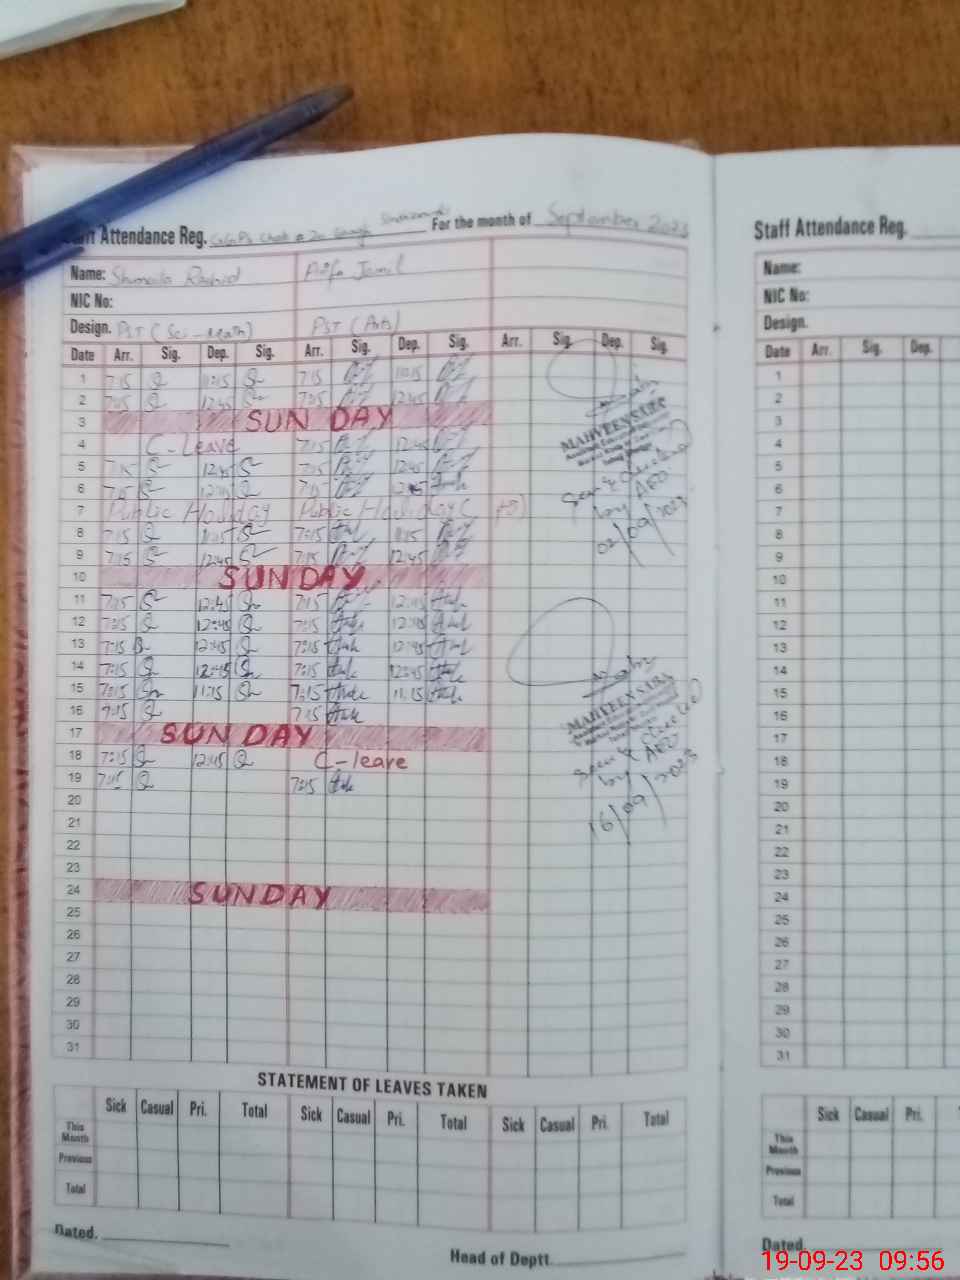 Staff Attendance Reg. GGPS Chak # For the month of September 2023
Name: Shumaila Rashid Arifa Jamil
NIC No:
Design. PST (Sci-Math) PST (Arts)
Date Arr. Sig. Dep. Sig. Arr. Sig. Dep. Sig. Arr. Sig. Dep. Sig.
1 7:15 11:15 7:15 11:15
2 7:15 12:45 7:15 12:45
3 SUNDAY
4 C-Leave 7:15 12:45
5 7:15 12:45 7:15 12:45
6 7:15 12:45 7:15 12:45
7 Public Holiday Public Holiday
8 7:15 11:15 7:15 11:15
9 7:15 12:45 7:15 12:45
10 SUNDAY
11 7:15 12:45 7:15 12:45
12 7:15 12:45 7:15 12:45
13 7:15 12:45 7:15 12:45
14 7:15 12:45 7:15 12:45
15 7:15 11:15 7:15 11:15
16 7:15 7:15
17 SUNDAY
18 7:15 12:45 C-leave
19 7:15 7:15
20
21
22
23
24 SUNDAY
25
26
27
28
29
30
31
MAHVEEN SABA
Seen & Checked
by AEO
02/09/2023
MAHVEEN SABA
Seen & Checked
by AEO
16/09/2023
STATEMENT OF LEAVES TAKEN
Sick Casual Pri. Total Sick Casual Pri. Total Sick Casual Pri. Total
This Month
Previous
Total
Dated.
Head of Deptt.
Staff Attendance Reg.
Name:
NIC No:
Design.
Date Arr. Sig. Dep.
1
2
3
4
5
6
7
8
9
10
11
12
13
14
15
16
17
18
19
20
21
22
23
24
25
26
27
28
29
30
31
Sick Casual Pri.
This Month
Previous
Total
Dated.
19-09-23 09:56